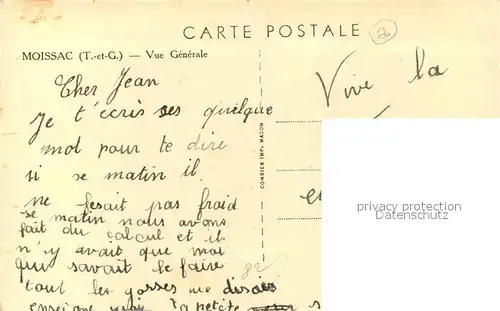 CARTE POSTALE
MOISSAC (T.-et-G.) — Vue Générale
Cher Jean
Je t'écris ses quelque
mot pour te dire
si se matin il
ne fesait pas froid
se matin nous avons
fait du calcul et il
n'y avait que moi
qui savait le faire
tout les gosses me disais
enseigne moi ta petite
Vive la
COMBIER IMP. MACON
privacy protection
Datenschutz